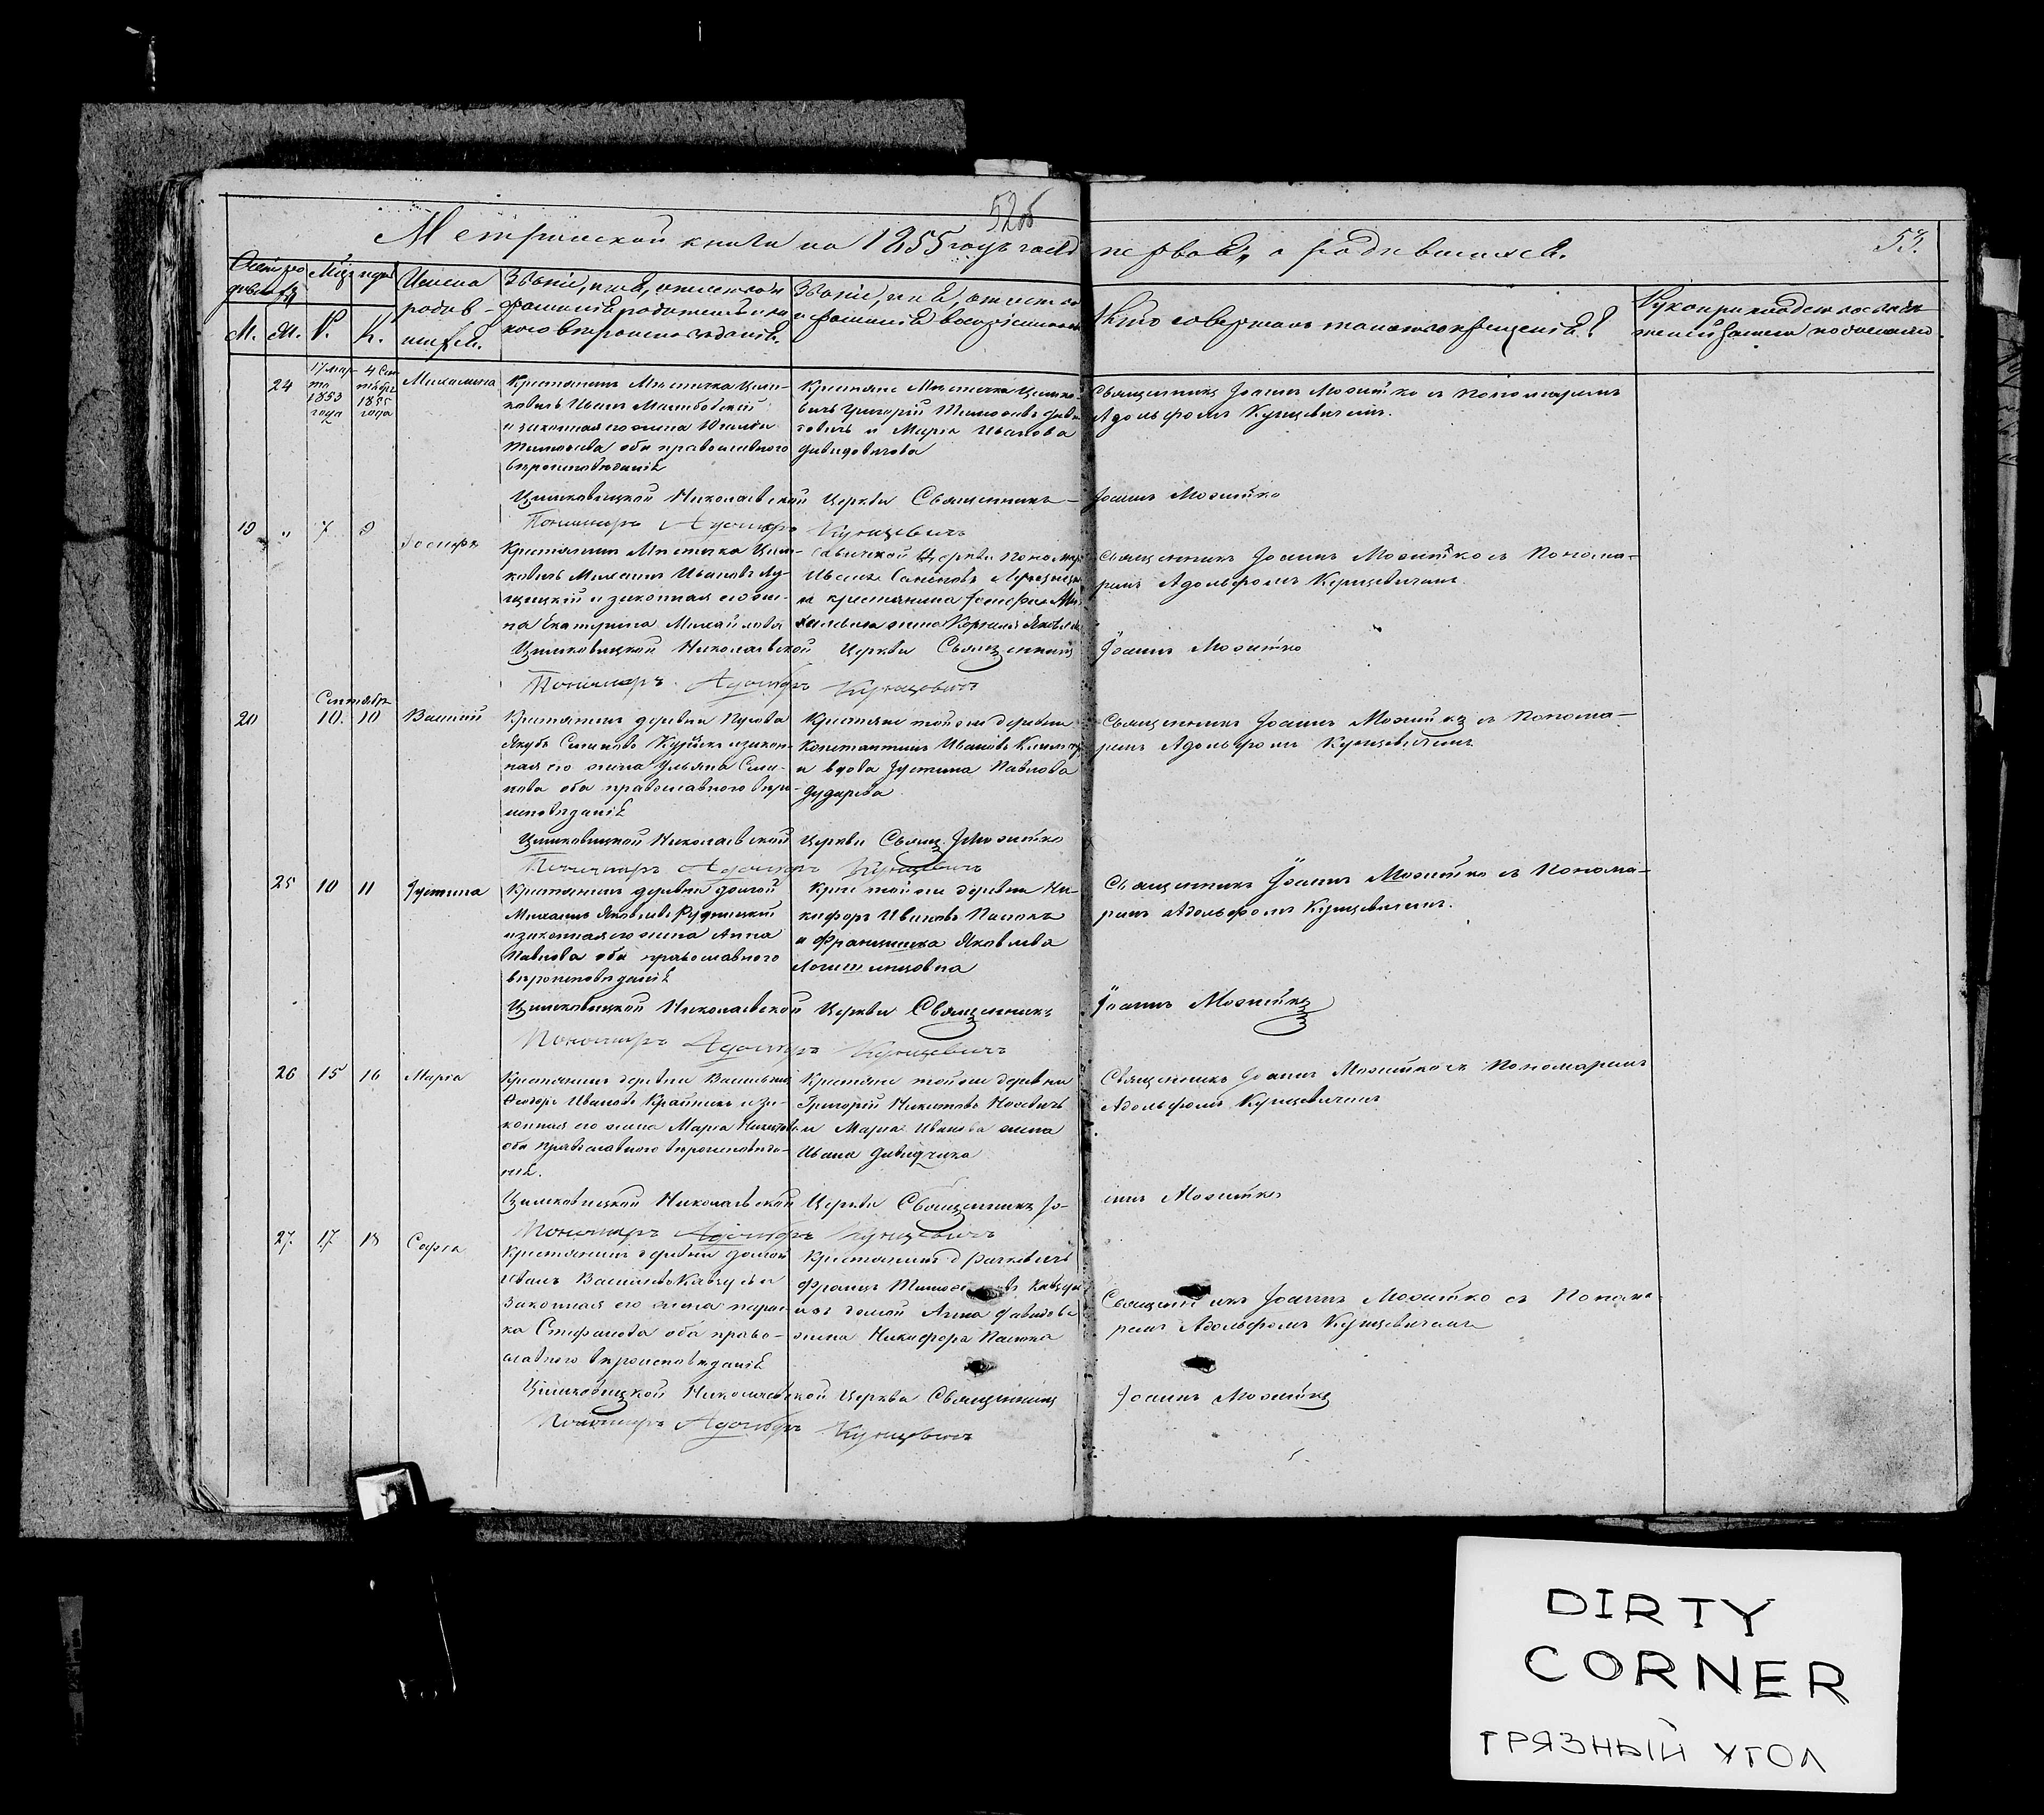 52об
53.
Метрической книги на 1855 годъ часть первая, о родившихся.
М. Ж. Р. К.
Имена родив-
шихся.
Званіе, имя, отчество и
фамилія родителей и ка-
кого вѣроисповѣданія.
Званіе, имя, отчество
и фамилія воспріемниковъ
Кто совершалъ таинство крещенія?
24
17 мар-
та
1853
года
4 Сен
тября
1855
года
Михалина
Крестьянинъ Мѣстечка Цим-
ковичъ Иванъ
и законная его жена
Тимоѳеева оба православного
вѣроисповѣданія
Крестьяне Мѣстечка Цимко-
вичъ Григорій Тимоѳеевъ Диви
товичъ и Марія Иванова
Дивидовичова
Священникъ Іоаннъ Можейко съ Пономаремъ
Адольфомъ Кунцевичемъ.
Цимковицкой Николаевской Церкви Священникъ Іоаннъ Можейко
Пономарь Адольфъ Кунцевичъ
19 " 7 9 Іосифъ
Крестьянинъ Мѣстечка Цим-
ковичъ Михаилъ Ивановъ Лу-
цицкій и законная его же-
на Екатерина Михайлова
Церкви Поном
Иванъ Семеновъ
и крестьянина Іосифа Ми
жена
Священникъ Іоаннъ Можейко съ Понома-
ремъ Адольфомъ Кунцевичемъ
Цимковицкой Николаевской Церкви Священникъ Іоаннъ Можейко
Пономарь Адольфъ Кунцевичъ
Сентября
20 10. 10 Василій
Крестьянинъ деревни Пузова
Якубъ Семеновъ и закон-
ная его жена Ульяна Семе-
нова оба православного вѣро-
исповѣданія
Крестьяне той же деревни
Константинъ Ивановъ
и вдова Іустина Павлова
Дударева
Священникъ Іоаннъ Можейко съ Понома-
ремъ Адольфомъ Кунцевичемъ
Цимковицкой Николаевской Церкви Свящ. І Можейко
Пономарь Адольфъ Кунцевичъ
25 10 11 Іустина
Крестьянинъ деревни Долгой
Михаилъ Яковлевъ Рудницкій
и законная его жена Анна
Павлова оба православного
вѣроисповѣданія
Крест той же деревни Ни-
кифоръ Ивановъ Палюхъ
и Францишка Яковлева
Священникъ Іоаннъ Можейко съ Понома-
ремъ Адольфомъ Кунцевичемъ.
Цимковицкой Николаевской Церкви Священникъ Іоаннъ Можейко
Пономарь Адольфъ Кунцевичъ
26 15 16 Марія
Крестьянинъ деревни
Ѳеодоръ Ивановъ Крайникъ и за-
конная его жена Марія Никитова
оба православного вѣроисповѣда-
нія.
Крестьяне той же деревни
Григорій Никитовъ
и Марія Иванова жена
Ивана Дивидчика
Священникъ Іоаннъ Можейко съ Пономаремъ
Адольфомъ Кунцевичемъ
Цимковицкой Николаевской Церкви Священникъ Іо-
аннъ Можейко
Пономарь Адольфъ Кунцевичъ
27. 17 18 Софія
Крестьянинъ деревни Долгой
Иванъ Васильевъ Кавцу и
законная его жена Парас-
ка Стефанова оба право-
славного вѣроисповѣданія
Крестьянинъ д
Францъ Тимоѳеевъ
изъ Долгой Анна Давидова
жена Никифора Палюха
Священникъ Іоаннъ Можейко съ Понома-
ремъ Адольфомъ Кунцевичемъ
Цимковицкой Николаевской Церкви Священникъ Іоаннъ Можейко
Пономарь Адольфъ Кунцевичъ
DIRTY
CORNER
ГРЯЗНЫЙ УГОЛ